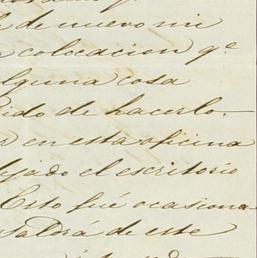 de nuevo mi
colocacion q.e
alguna cosa
dido de hacerlo.
en esta oficina
dejado el escritorio
Esto fué ocasiona-
saldrá de este